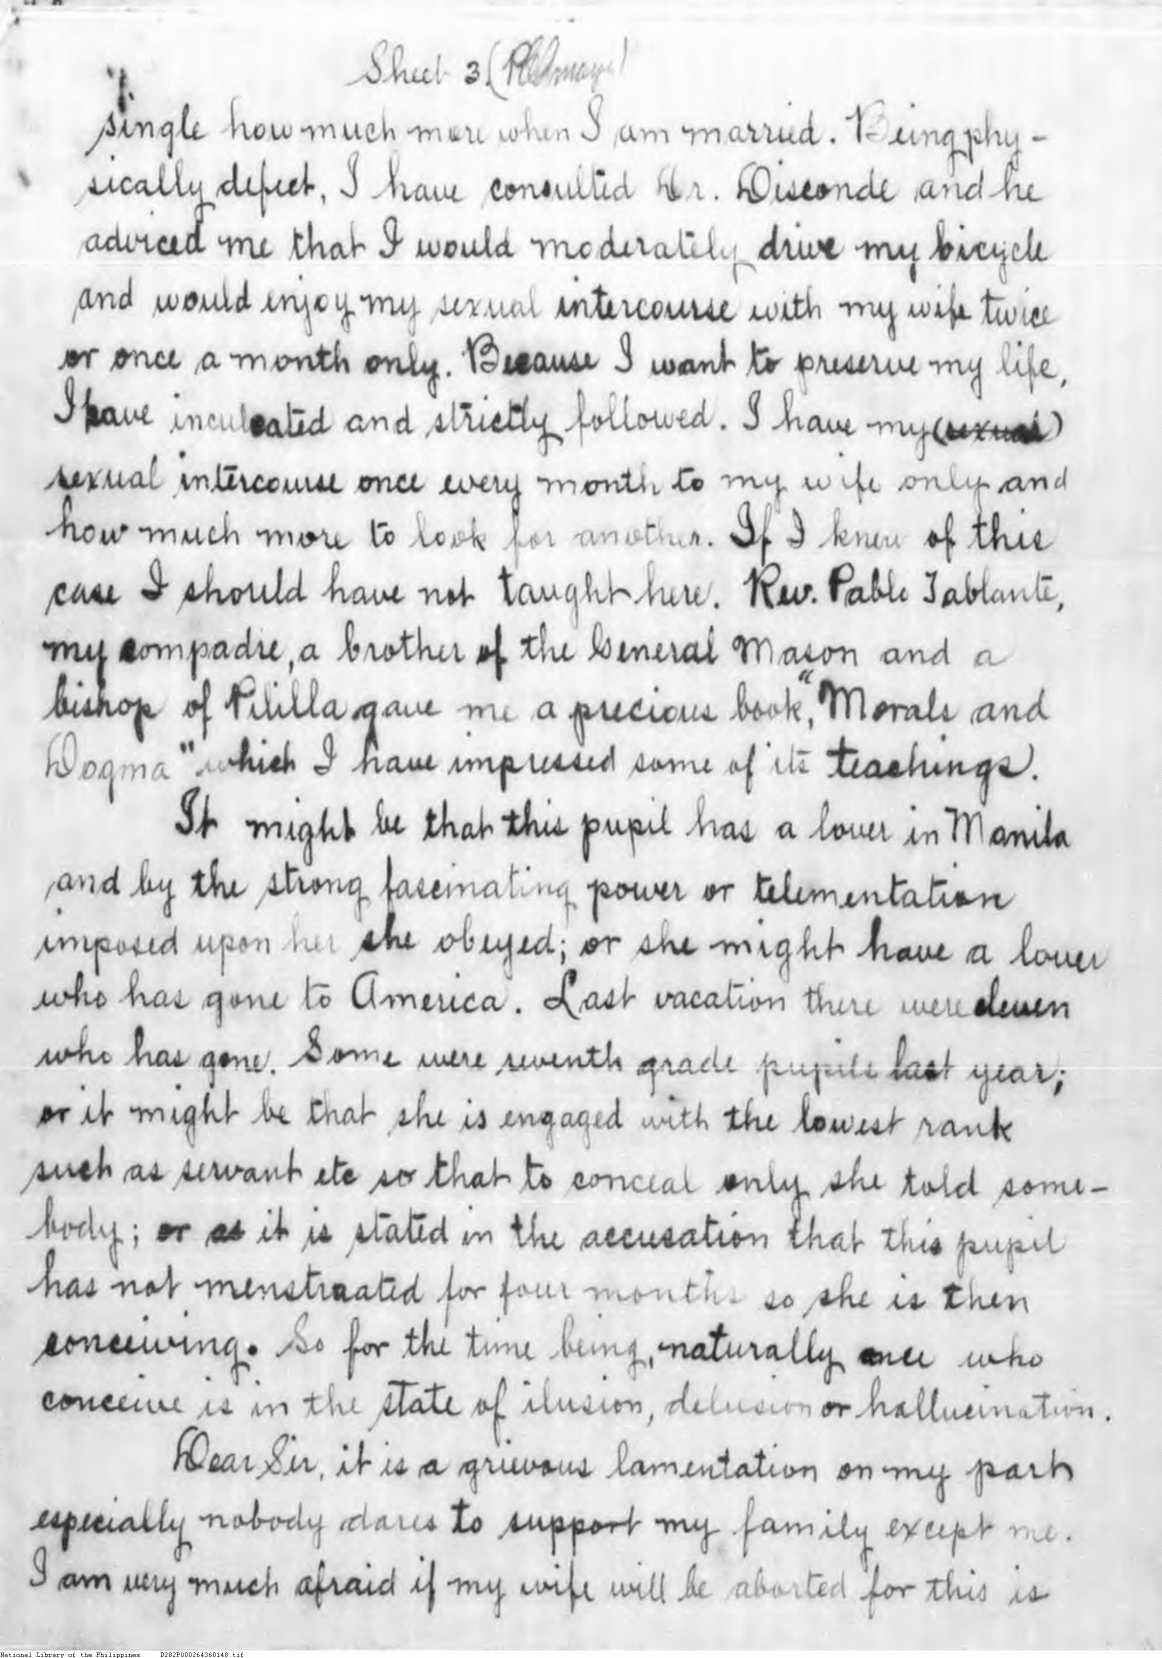 Sheet 3 (
single how much more when I am married. Being phy-
sically defect, I have consulted Dr. Disconde and he
adviced me that I would moderately drive my bicycle
and would enjoy my sexual intercourse with my wife twice
or once a month only. Because I want to preserve my life,
I have inculcated and strictly followed. I have my (sexual)
sexual intercourse once every month to my wife only and
how much more to look for another. If I knew of this
case I should have not taught here. Rev. Pablo Tablante,
my compadre, a brother of the General Mason and a
bishop of Pililla gave me a precious book, "Morals and
Dogma" which I have impressed some of its teachings.
It might be that this pupil has a lover in Manila
and by the strong fascinating power or telementation
imposed upon her she obeyed; or she might have a lover
who has gone to America. Last vacation there were eleven
who has gone. Some were seventh grade pupils last year;
or it might be that she is engaged with the lowest rank
such as servant etc so that to conceal only she told some-
body; or as it is stated in the accusation that this pupil
has not menstraated for four months so she is then
conceiving. So for the time being, naturally once who
conceive is in the state of ilusion, delusion or hallucination.
Dear Sir, it is a grievous lamentation on my part
especially nobody dares to support my family except me.
I am very much afraid if my wife will be aborted for this is
National Library of the Philippines D282P000264360148.tif